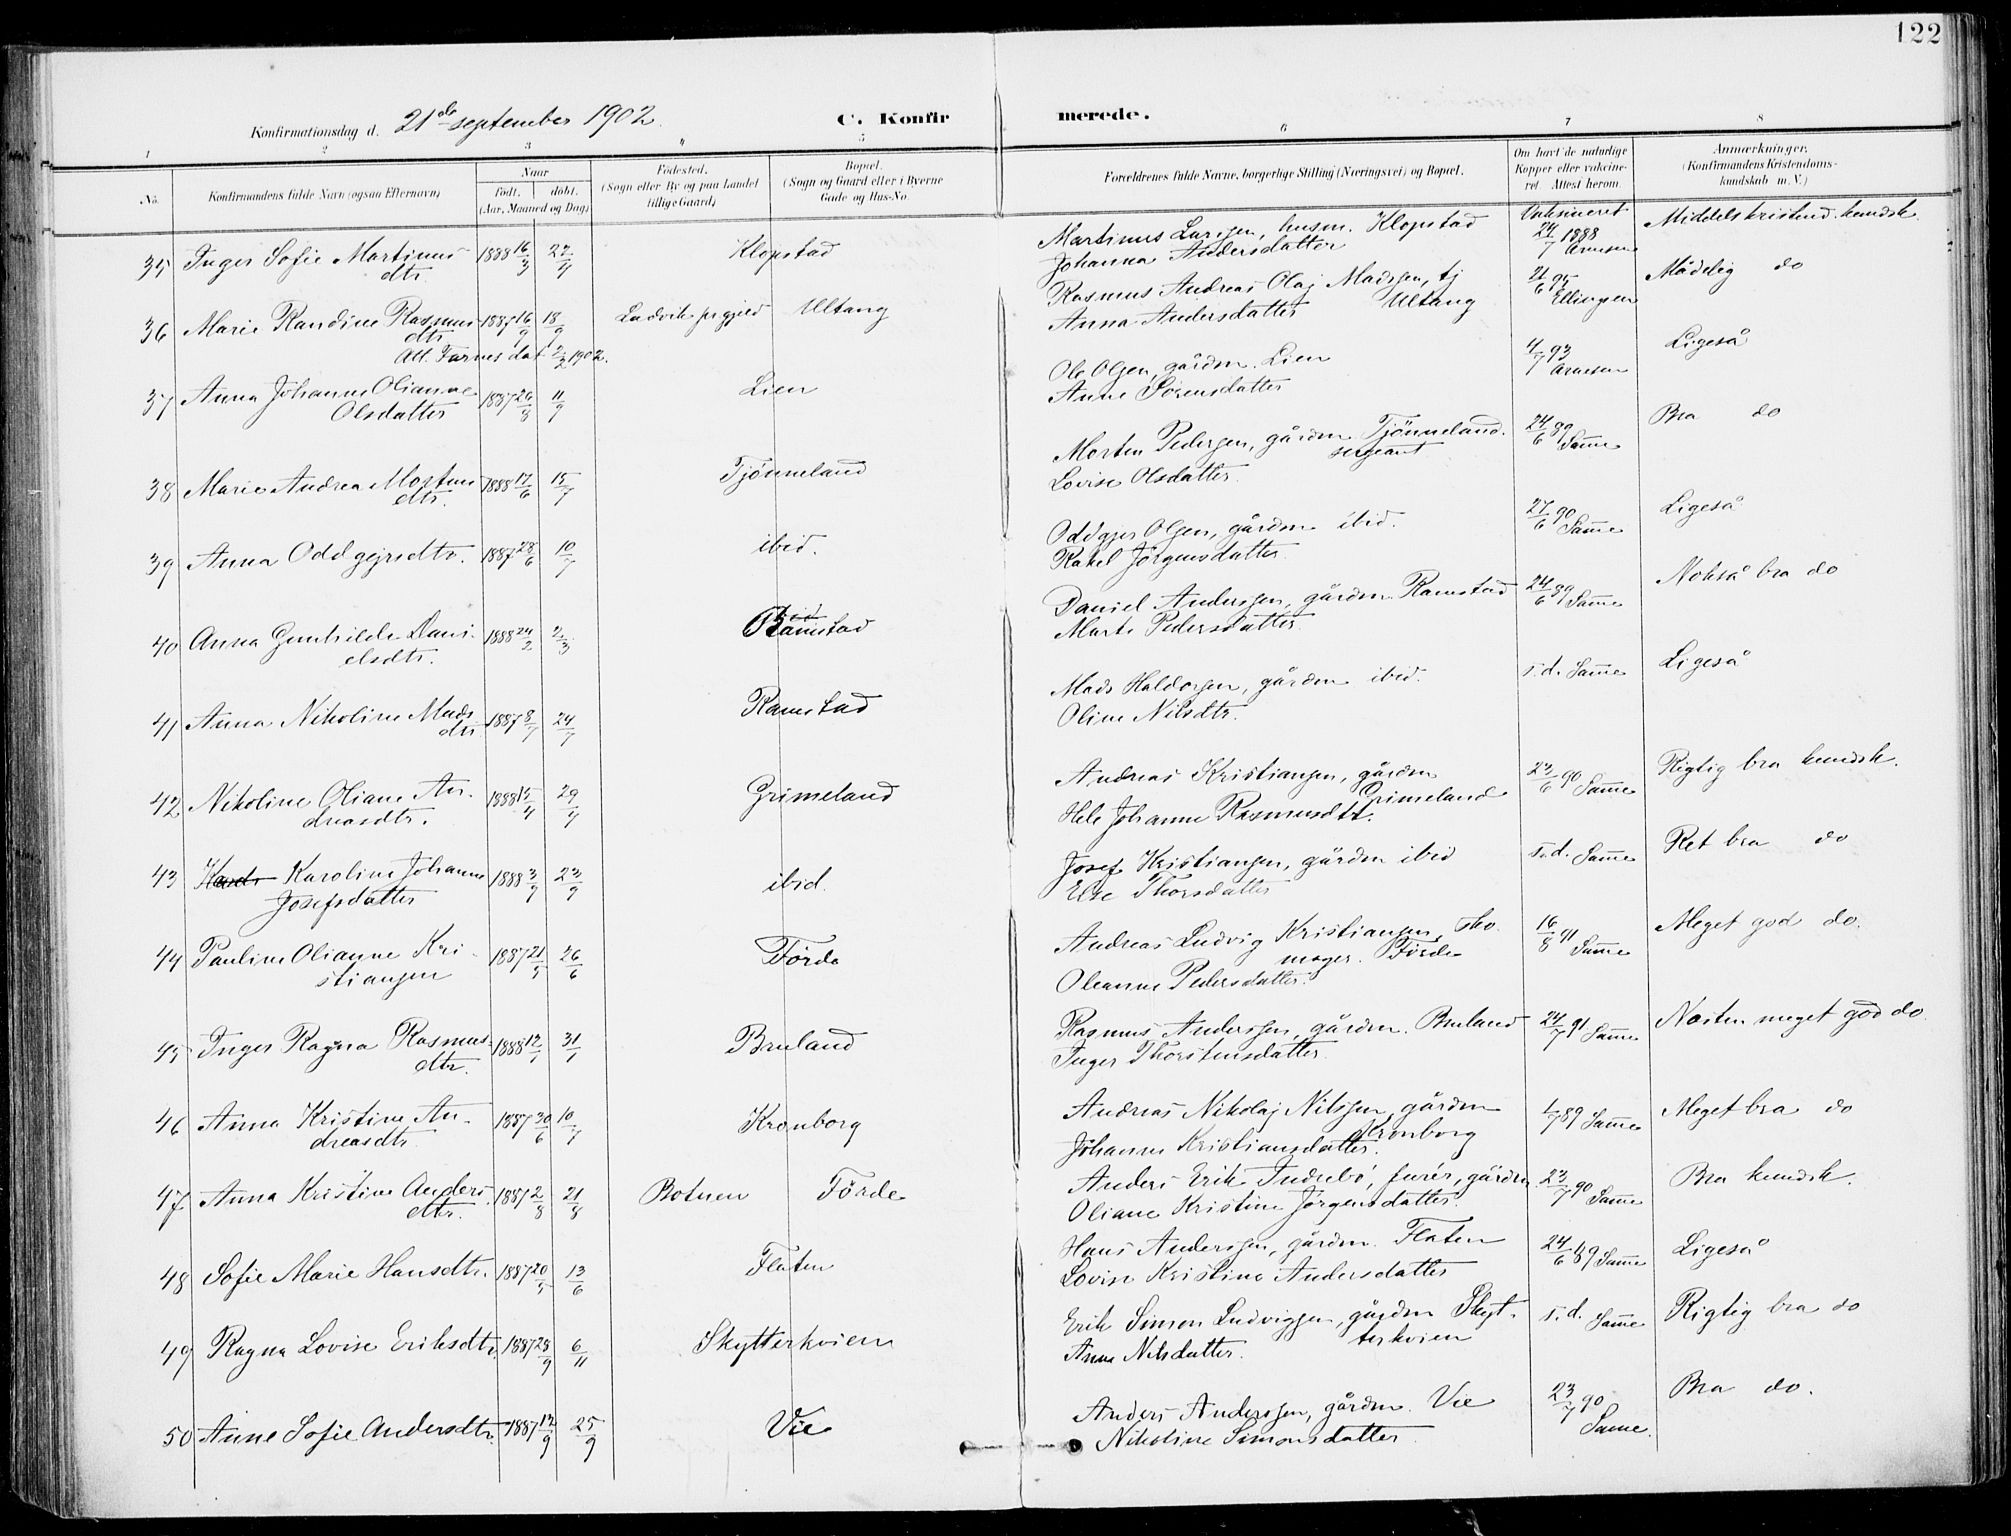 122
Konfirmationsdag d. 21de september 1902.
C. Konfirmerede.
1 2 3 4 5 6 7 8
No.
Konfirmandens fulde Navn (ogsaa Efternavn)
Naar
født. døbt.
(Aar, Maaned og Dag)
Fødested.
(Sogn eller By og paa Landet
tillige Gaard)
Bopæl.
(Sogn og Gaard eller i Byerne
Gade og Hus-No.
Forældrenes fulde Navne, borgerlige Stilling (Næringsvei) og Bopæl.
Om havt de naturlige
Kopper eller vakcine-
ret. Attest herom.
Anmærkninger.
(Konfirmandens Kristendoms-
kundskab m. V.)
35 Inger Sofie Martinus- 1888 16/3 22/4 Klopstad
dtr.
Martinus Larsen, husm. Klopstad
Johanna Andersdatter
Vaksineret
24/7 1888
Arnesen
Middels kristend. kundsk.
36 Marie Randine Rasmus- 1887 16/9 18/9 Ladvik prgjeld Ultang
dtr.
Att. Farnes dat 2/3 1902.
Rasmus Andreas Olaj Madssen, tj
Anna Andersdatter Ultang
21/6 95
Ellingsen
Mådelig do
37 Anna Johanne Olianne 1887 26/8 11/9 Lien
Olsdatter
Ole Olsen, gårdm. Lien
Anne Sørensdatter
4/7 93
Arnesen
Ligeså
38 Marie Andrea Mortens- 1888 17/6 15/7 Tjønneland
dtr.
Morten Pedersen, gårdm Tjønneland.
sergeant
Lovise Olsdatter.
24/6 89
Samme
Bra do
39 Anna Oddgejrsdtr. 1887 28/6 10/7 ibid.
Oddgjer Olsen, gårdm ibid.
Rakel Jørgensdatter.
27/6 90
Samme
Ligeså
40 Anna Gunhilde Dani- 1888 24/2 2/3 Ramstad
elsdtr.
Daniel Anderssen, gårdm Ramstad
Marte Pedersdatter
24/6 89
Samme
Nokså bra do
41 Anna Nikoline Mads- 1887 8/7 24/7 Ramstad
dtr
Mads Haldorsen, gårdm ibid.
Oline Nilsdtr.
s.d. Samme
Ligeså
42 Nikoline Oliane An- 1888 15/4 29/4 Grimeland
dreasdtr.
Andreas Kristiansen, gårdm
Grimeland
Hele Johanne Rasmusdtr.
23/6 90 Samme
Rigtig bra kundsk.
43 Karoline Johanne 1888 3/9 23/9 ibid.
Josefsdatter
Josef Kristiansen, gårdm ibid
Else Thorsdatter
s.d. Samme
Ret bra do
44 Pauline Olianne Kri- 1887 21/5 26/6 Førde
stiansen
Andreas Ludvig Kristiansen, sko-
mager. Førde
Oleanne Pedersdatter.
16/8 91
Samme
Meget god do.
45 Inger Ragna Rasmus- 1888 12/1 31/1 Bruland
dtr.
Rasmus Anderssen, gårdm. Bruland
Inger Thorstensdatter.
24/7 91 Samme
Næsten meget god do.
46 Anna Kristine An- 1887 30/6 10/7 Kronborg
dreasdtr.
Andreas Nikolaj Nilssen, gårdm
Kronborg
Johanne Kristiansdatter.
4/7 89 Samme
Meget bra do
47 Anna Kristine Anders- 1887 2/8 21/8 Botnen Førde
dtr.
Anders Erik Indrebø, furér, gårdm
Oliane Kristine Jørgensdatter.
23/7 90 Samme
Bra kundsk.
48 Sofie Marie Hansdtr. 1887 20/5 13/6 Flaten
Hans Anderssen, gårdm. Flaten
Lovise Kristine Andersdatter
24/6 89 Samme
Ligeså
49 Ragna Lovise Eriksdtr. 1887 28/9 6/11 Skytterkvien
Erik Simon Ludvigsen, gårdm Skyt-
terkvien
Anna Nilsdatter.
s.d. Samme
Rigtig bra do
50 Anne Sofie Andersdtr. 1887 12/9 25/9 Vie
Anders Anderssen, gårdm. Vie
Nikoline Simonsdatter.
23/7 90
Samme.
Bra do.